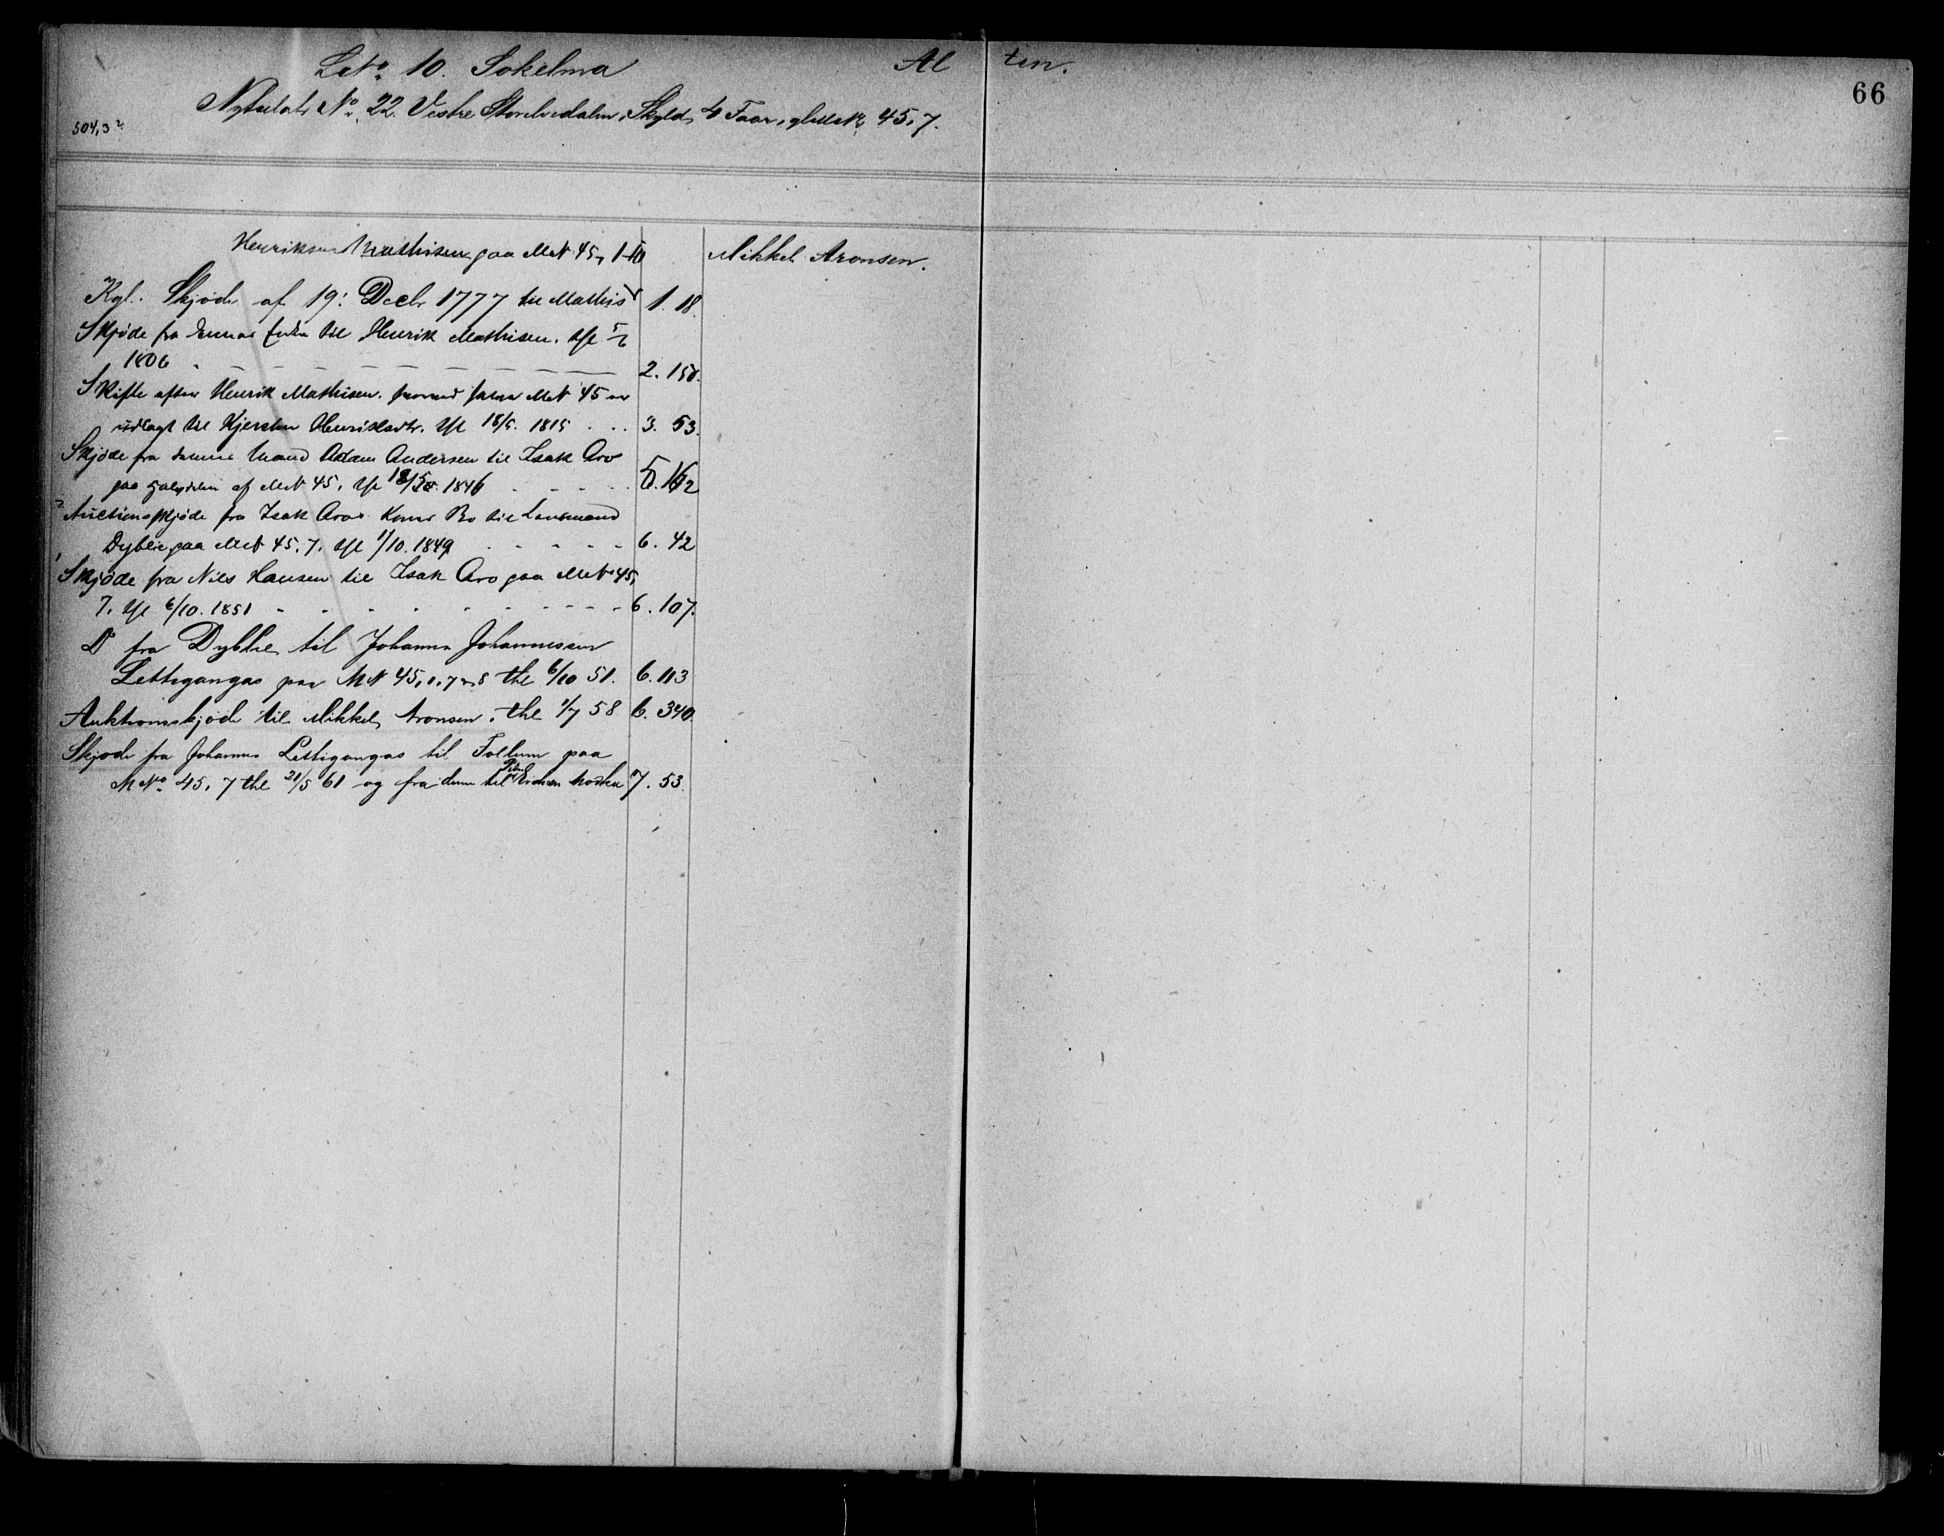 LNo 10. Sokelma Alten.
66
Matrikuls No 22. Vestre Storelvedalen, Skyld 4 Faar, gl. Matr. 45, 7.
504,3²
Henriksen Mathisen paa MN 45, 1-10
Mikkel Aronsen.
Kgl. Skjøde af 19: Decbr 1777 til Mathis 1. 18.
Skjøde fra dennes Enke til Henrik Mathisen. thl 5/6
1806 2. 150.
Skifte efter Henrik Mathisen. MN 45 er
udlagt til Kjersten Henriksdtr. thl 15/5. 1815 . . . 3. 53.
Skjøde fra denne Mand Adam Andersen til Isak Aro
paa Halvdelen af MN 45. thl 1846 5. 162
2 Auctionsskjøde fra Isak Aros Bo til Lensmand
Dyblie paa MN 45. 7. thl 1/10. 1849 6. 42
1 Skjøde fra Nils Hansen til Isak Aro paa MN 45,
7. thl 6/10. 1851 6. 107.
Do fra Dyblie til Johannes Johannessen
Lettigangas paa MN 45, 1, 7 & 8 thl 6/10 51. 6. 113
Auktionsskjøde til Mikkel Aronsen. thl 1/7 58 6. 340.
Skjøde fra Johannes Lettigangas til Follum paa
MNo 45, 7 thl 21/5 61 og fra dem til Eriksen 7. 53.